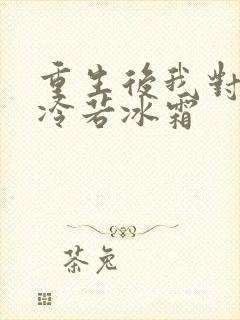 重生後我對
冷若冰霜
茶兔